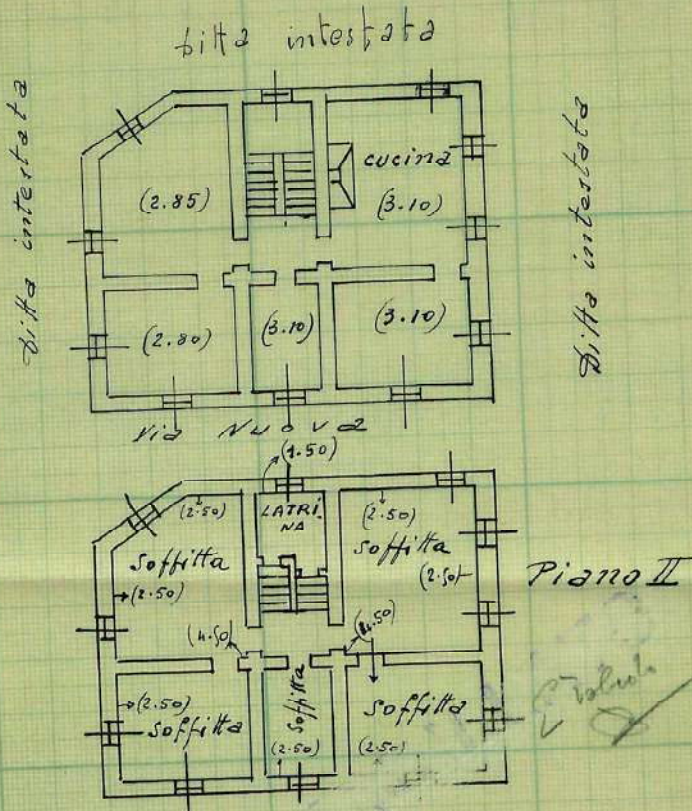 Ditta intestata
Ditta intestata
Ditta intestata
cucina
(2.85)
(3.10)
(2.80)
(3.10)
(3.10)
Via Nuova
(1.50)
LATRI-
NA
(2.50)
(2.50)
soffitta
soffitta
(2.50)
(2.50)
Piano II
(4.50)
(4.50)
(2.50)
soffitta
soffitta
soffitta
(2.50)
(2.50)